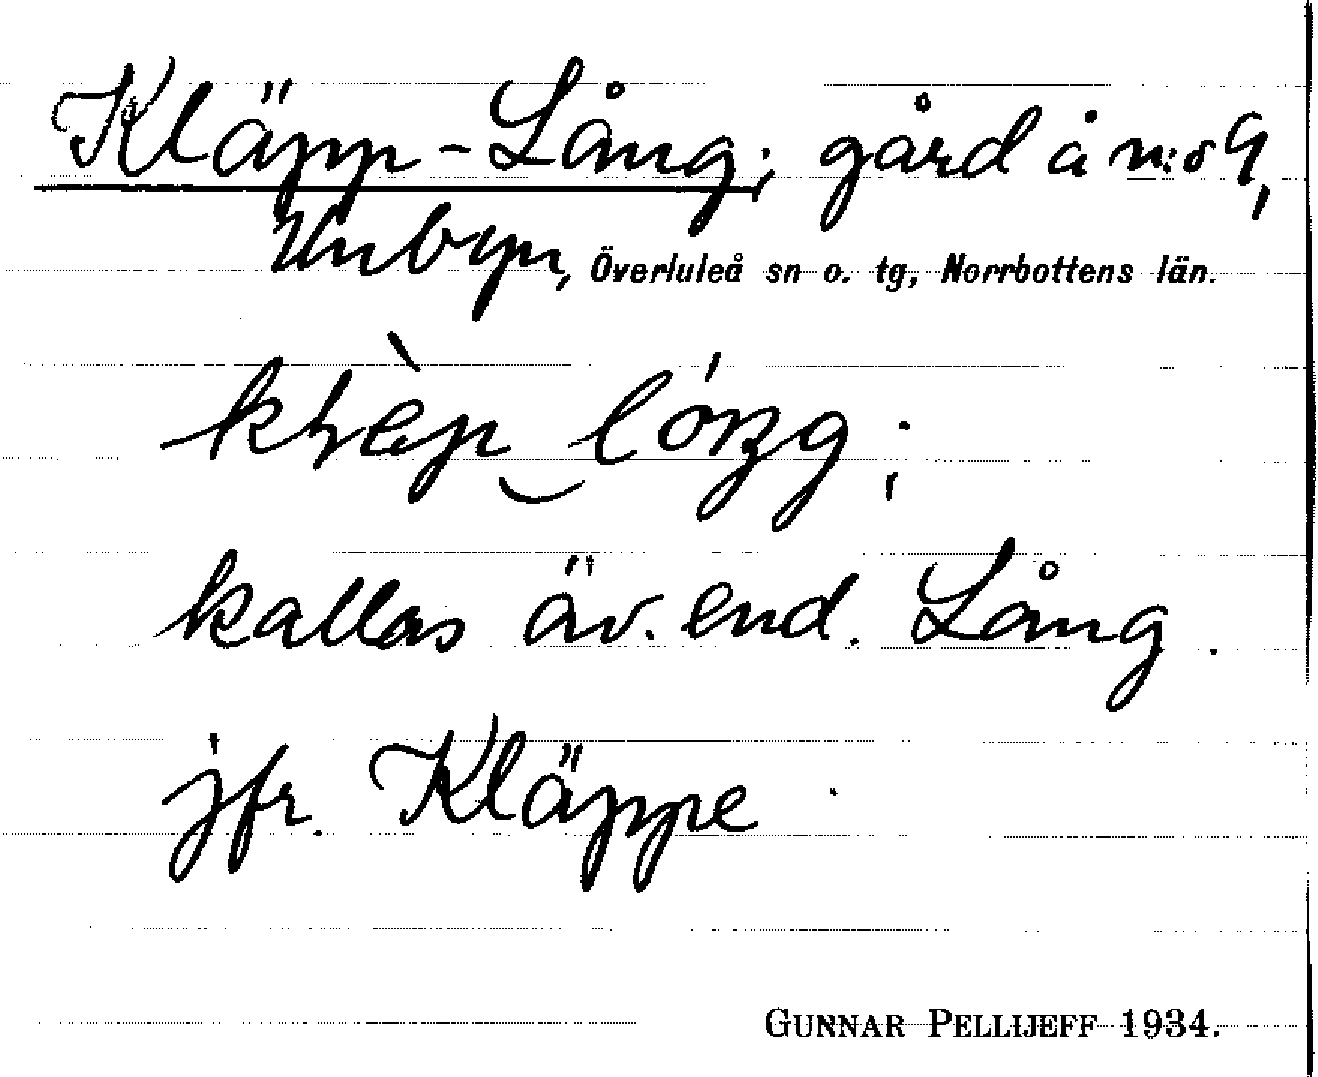 Kläpp-Lång; gård å n:o 9,
Unbyn, Överluleå sn o. tg, Norrbottens län.
kallas äv. end. Lång.
jfr. Kläppe.
GUNNAR PELLIJEFF 1934.